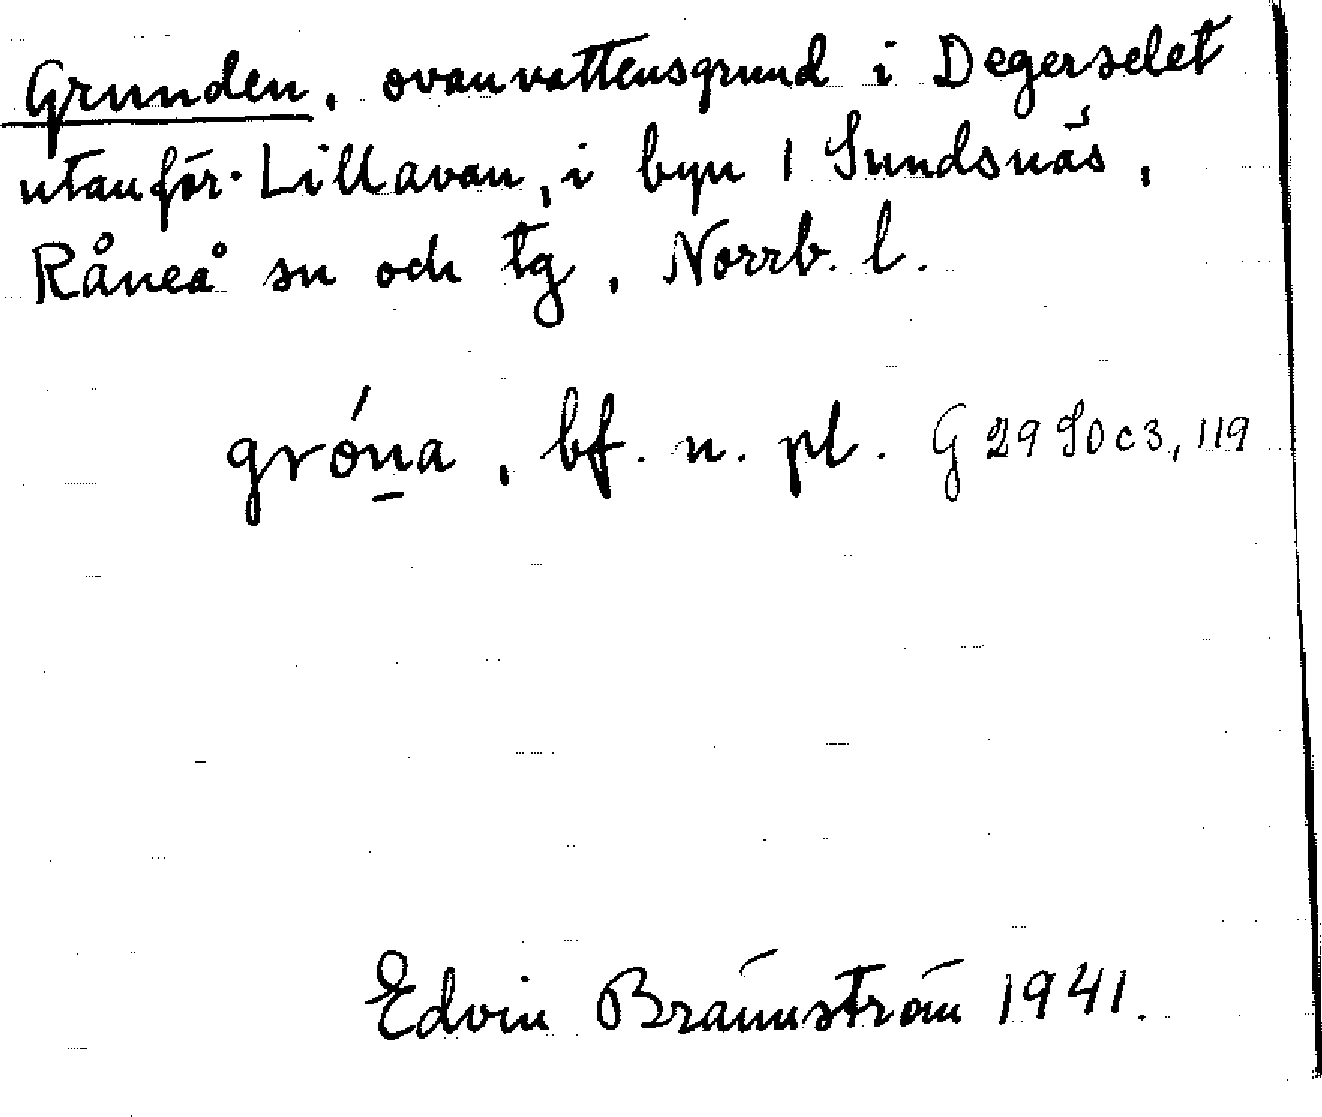 Grunden, ovanvattensgrund i Degerselet
utanför Lillavan, i byn 1 Sundsnäs,
Råneå sn och tg, Norrb. l.
gróṉa, bf. n. pl. G 29 S0c3, 119
Edvin Brännström 1941.